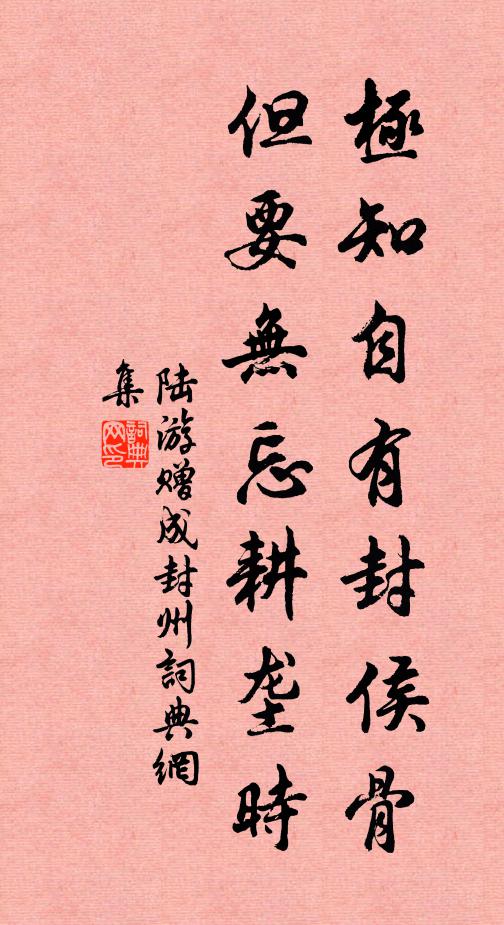 極知自有封侯骨
但要無忘耕垄時
陆游赠成封州詞典網
集
詞典
网印